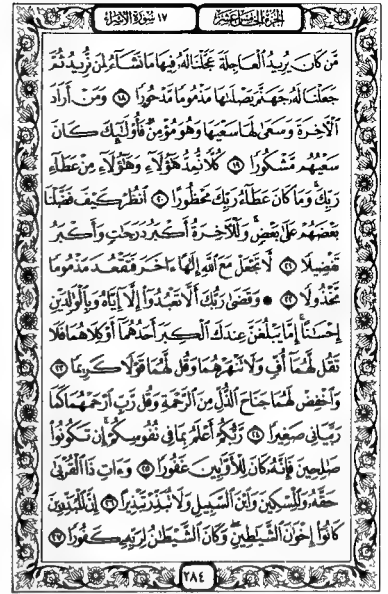 الجزء الخامس عشر
١٧ سورة الإسراء
مَّن كَانَ يُرِيدُ الْعَاجِلَةَ عَجَّلْنَا لَهُ فِيهَا مَا نَشَاءُ لِمَن نُّرِيدُ ثُمَّ
جَعَلْنَا لَهُ جَهَنَّمَ يَصْلَاهَا مَذْمُومًا مَّدْحُورًا ١٨ وَمَنْ أَرَادَ
الْآخِرَةَ وَسَعَىٰ لَهَا سَعْيَهَا وَهُوَ مُؤْمِنٌ فَأُولَٰئِكَ كَانَ
سَعْيُهُم مَّشْكُورًا ١٩ كُلًّا نُّمِدُّ هَٰؤُلَاءِ وَهَٰؤُلَاءِ مِنْ عَطَاءِ
رَبِّكَ وَمَا كَانَ عَطَاءُ رَبِّكَ مَحْظُورًا ٢٠ انظُرْ كَيْفَ فَضَّلْنَا
بَعْضَهُمْ عَلَىٰ بَعْضٍ وَلَلْآخِرَةُ أَكْبَرُ دَرَجَاتٍ وَأَكْبَرُ
تَفْضِيلًا ٢١ لَّا تَجْعَلْ مَعَ اللَّهِ إِلَٰهًا آخَرَ فَتَقْعُدَ مَذْمُومًا
مَّخْذُولًا ٢٢ وَقَضَىٰ رَبُّكَ أَلَّا تَعْبُدُوا إِلَّا إِيَّاهُ وَبِالْوَالِدَيْنِ
إِحْسَانًا إِمَّا يَبْلُغَنَّ عِندَكَ الْكِبَرَ أَحَدُهُمَا أَوْ كِلَاهُمَا فَلَا
تَقُل لَّهُمَا أُفٍّ وَلَا تَنْهَرْهُمَا وَقُل لَّهُمَا قَوْلًا كَرِيمًا ٢٣
وَاخْفِضْ لَهُمَا جَنَاحَ الذُّلِّ مِنَ الرَّحْمَةِ وَقُل رَّبِّ ارْحَمْهُمَا كَمَا
رَبَّيَانِي صَغِيرًا ٢٤ رَّبُّكُمْ أَعْلَمُ بِمَا فِي نُفُوسِكُمْ إِن تَكُونُوا
صَالِحِينَ فَإِنَّهُ كَانَ لِلْأَوَّابِينَ غَفُورًا ٢٥ وَآتِ ذَا الْقُرْبَىٰ
حَقَّهُ وَالْمِسْكِينَ وَابْنَ السَّبِيلِ وَلَا تُبَذِّرْ تَبْذِيرًا ٢٦ إِنَّ الْمُبَذِّرِينَ
كَانُوا إِخْوَانَ الشَّيَاطِينِ وَكَانَ الشَّيْطَانُ لِرَبِّهِ كَفُورًا ٢٧
٢٨٤